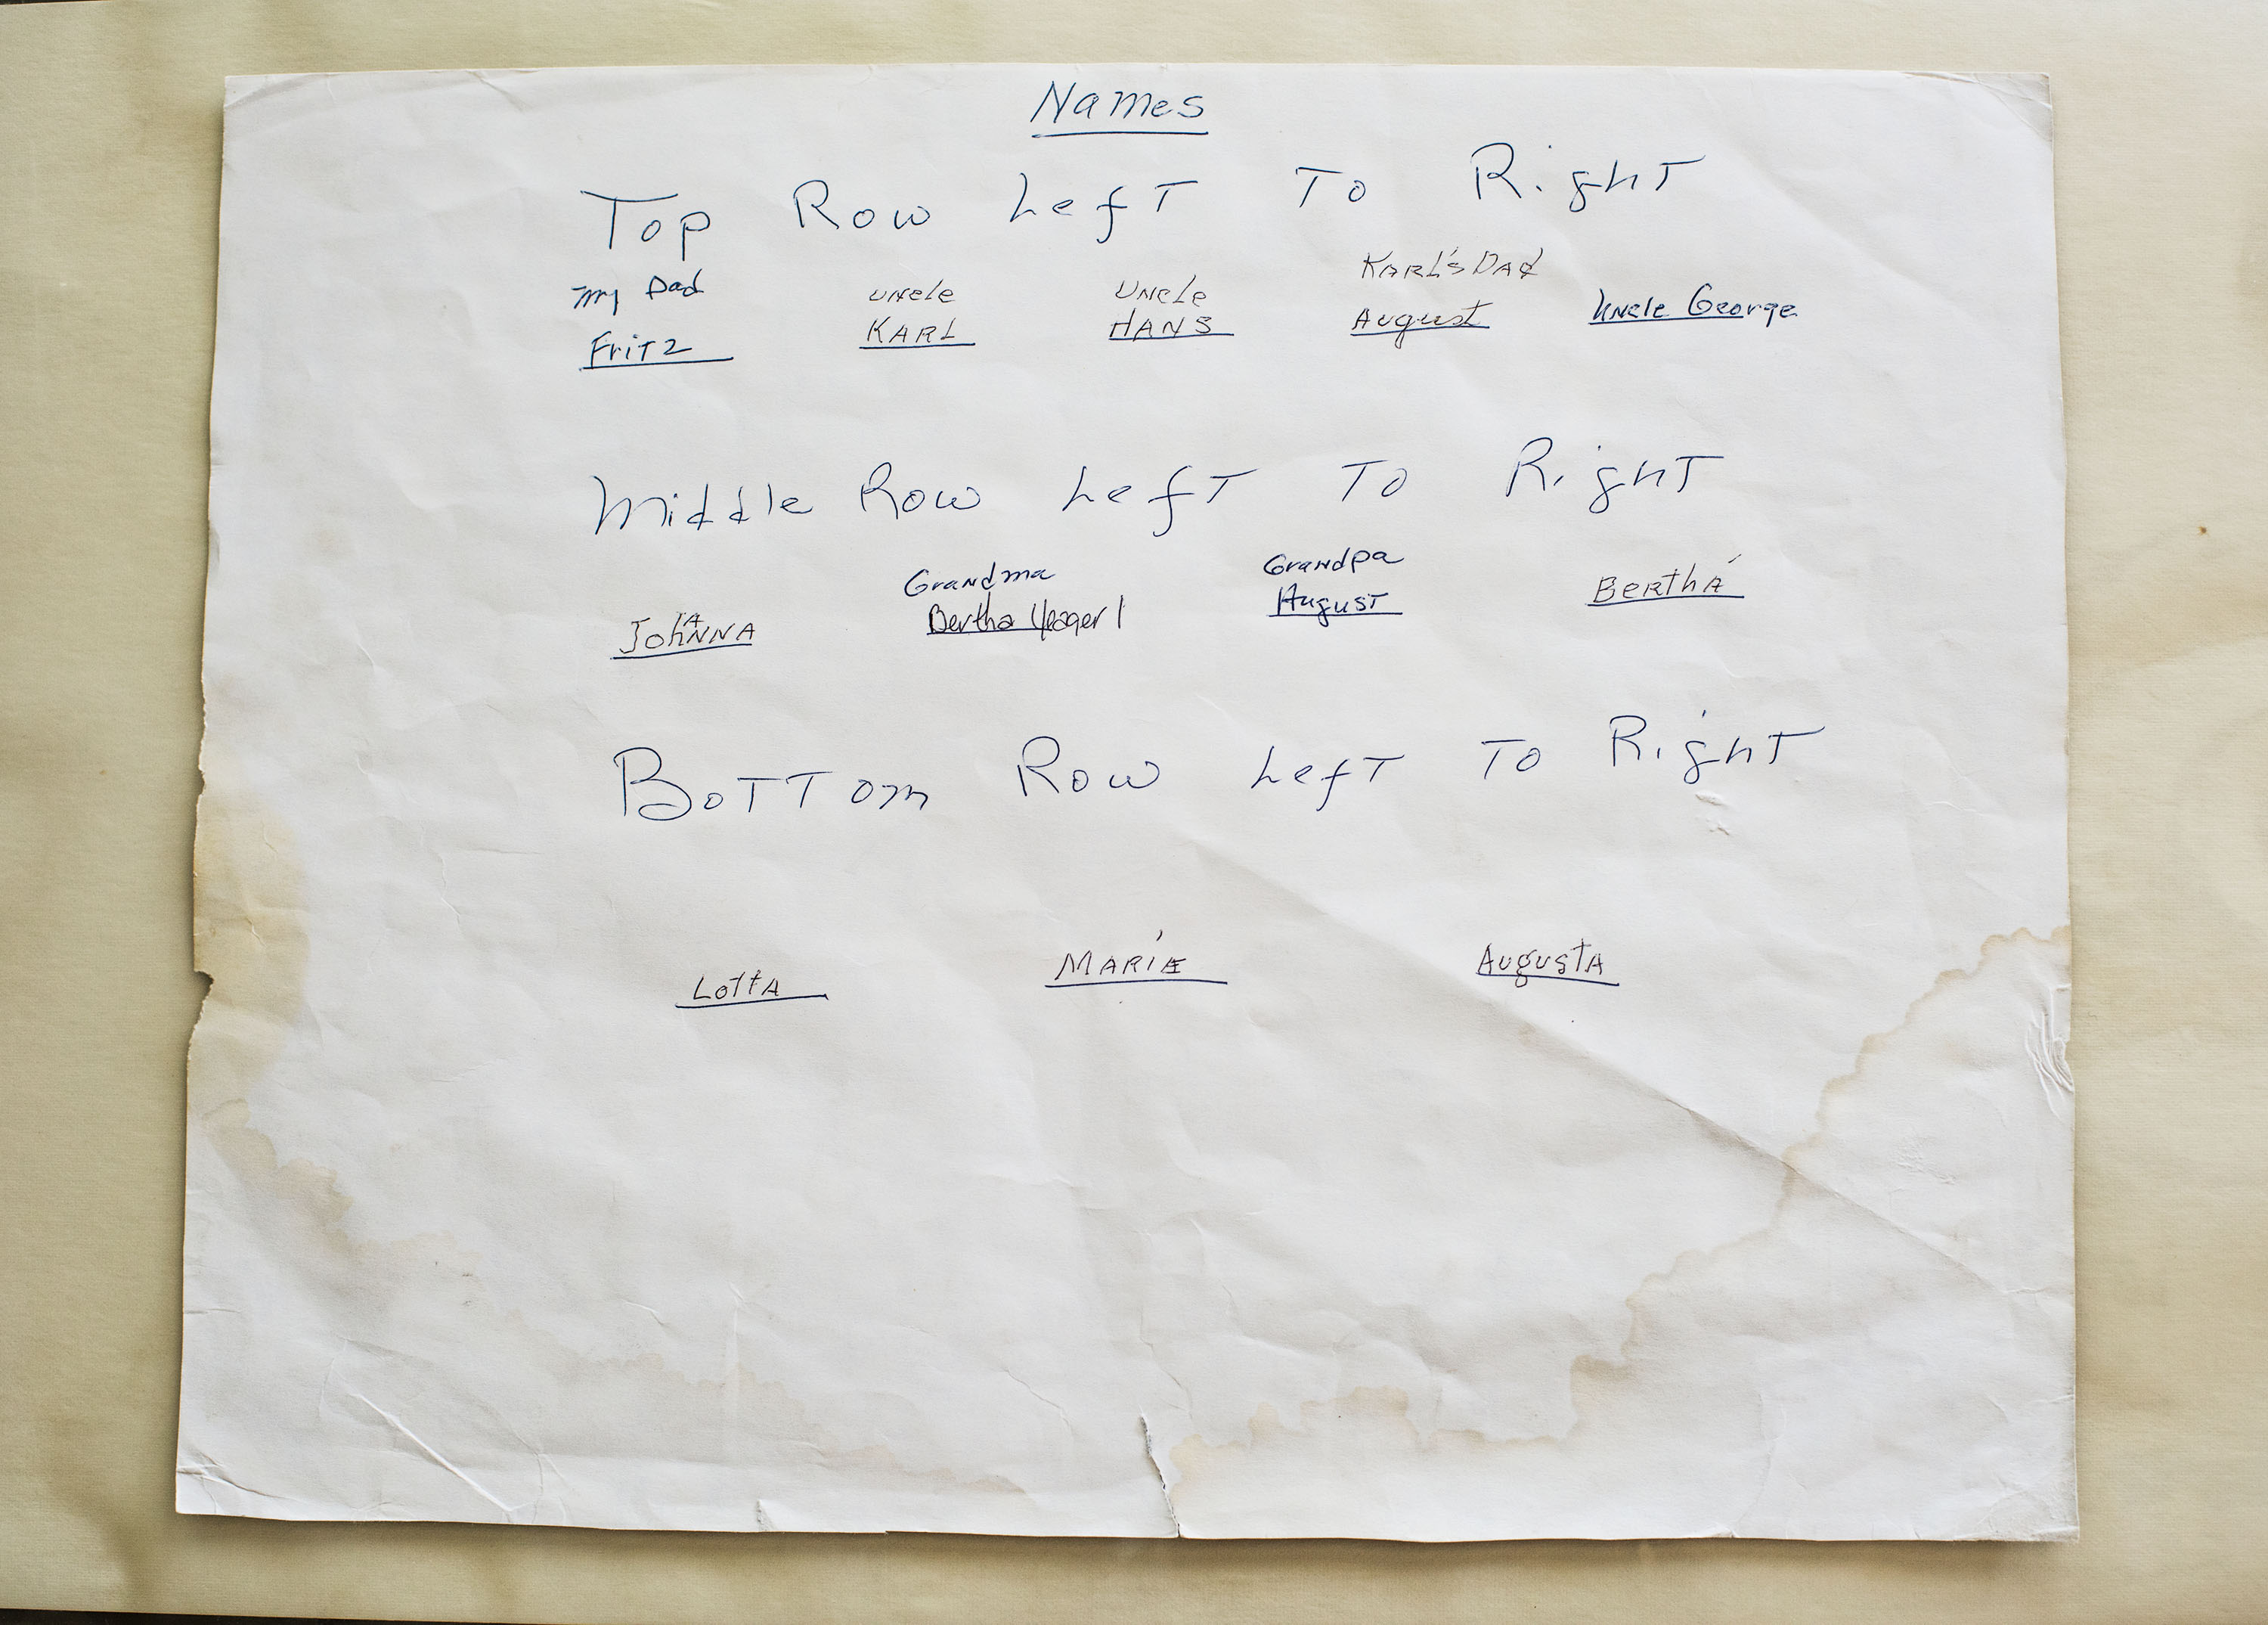 Names
Top Row Left To Right
My Dad Uncle Uncle Karl's Dad
Fritz KARL HANS August Uncle George
Middle Row Left To Right
Grandma Grandpa
JohANNA Bertha August BerthA
Bottom Row Left To Right
LottA MARIE AugustA